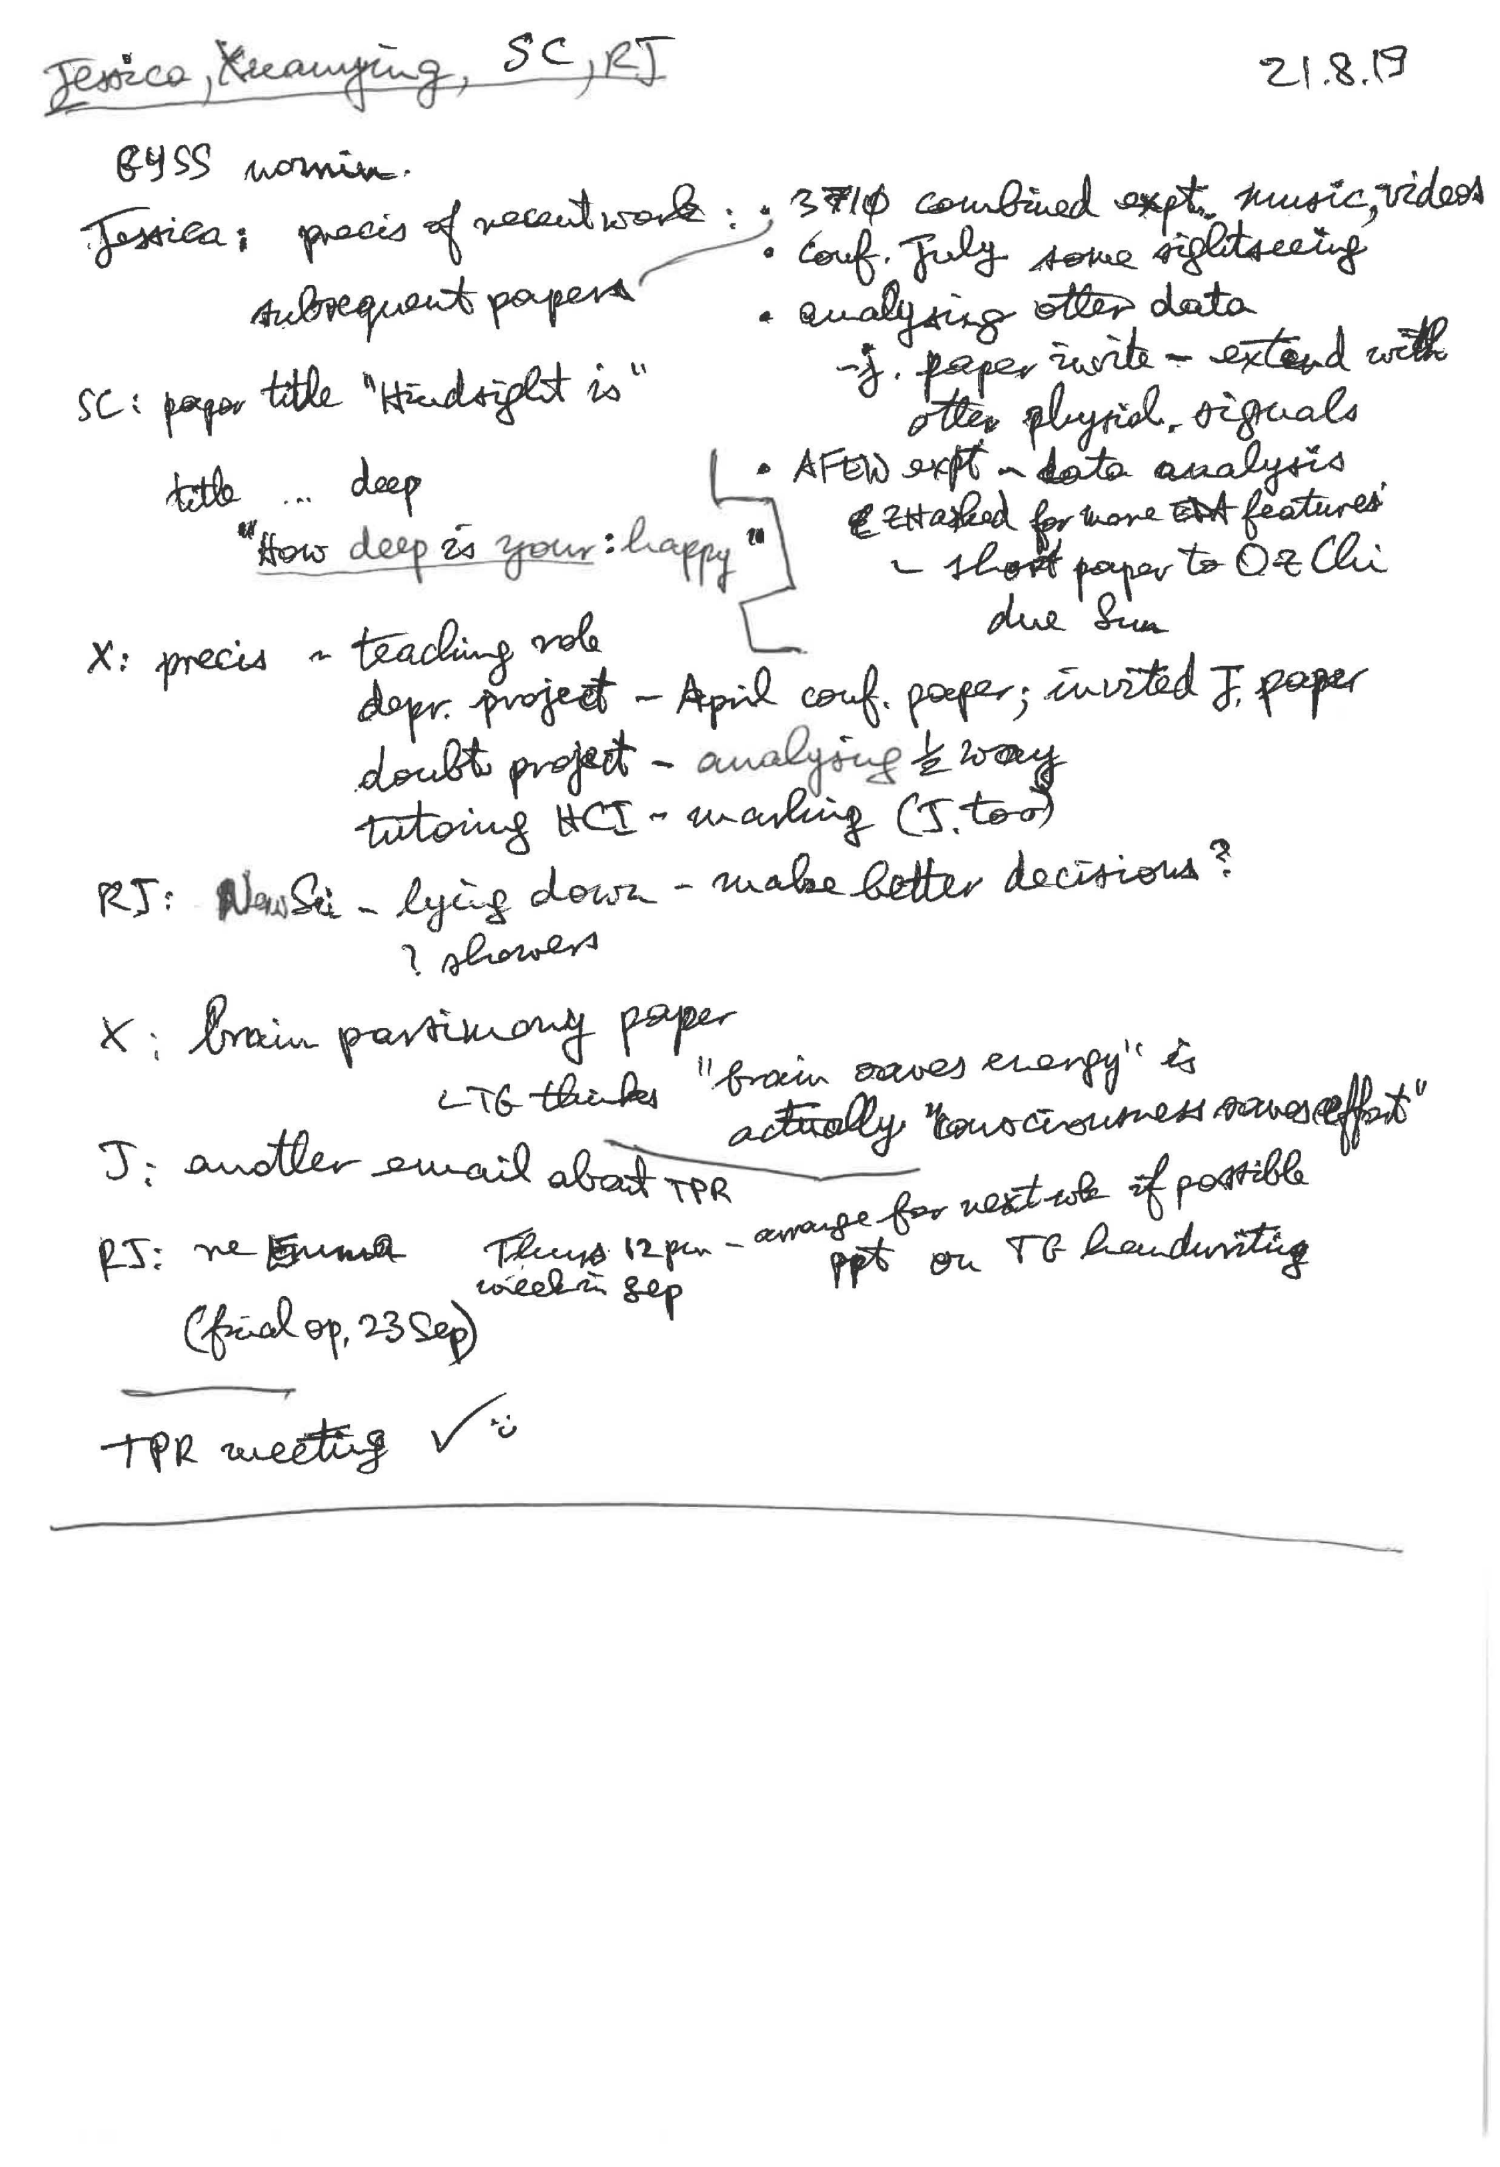 Jessica, Xuanying, SC, RJ
21.8.19
nomin.
Jessica: precis of recent work:
subsequent papers
• combined expt. music, videos
• conf. July some sightseeing
• analysing other data
- j. paper invite - extend with
other physiol. signals
• AFEW expt - data analysis
ZH asked for more features
- short paper to OzChi
due Sun
SC: paper title "Hindsight is"
title ... deep
"How deep is your: happy"
X: precis - teaching role
depr. project - April conf. paper; invited J. paper
doubt project - analysing ½ way
tutoring HCI - marking (J. too)
RJ: NewSci - lying down - make better decisions?
? showers
X: brain parsimony paper
TG thinks "brain saves energy" is
actually "consciousness saves effort"
J: another email about TPR
RJ: re Emma Thurs 12pm - arrange for next wk if possible
week in Sep
ppt on TG handwriting
(final op, 23 Sep)
TPR meeting ✓